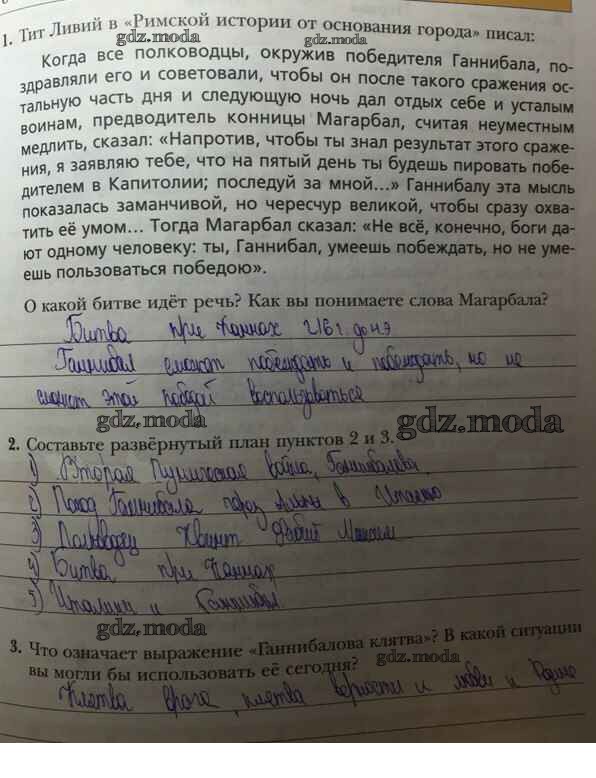 1. Тит Ливий в «Римской истории от основания города» писал:
gdz.moda
gdz.moda
Когда все полководцы, окружив победителя Ганнибала, по-
здравляли его и советовали, чтобы он после такого сражения ос-
тальную часть дня и следующую ночь дал отдых себе и усталым
воинам, предводитель конницы Магарбал, считая неуместным
медлить, сказал: «Напротив, чтобы ты знал результат этого сраже-
ния, я заявляю тебе, что на пятый день ты будешь пировать побе-
дителем в Капитолии; последуй за мной...» Ганнибалу эта мысль
показалась заманчивой, но чересчур великой, чтобы сразу охва-
тить её умом... Тогда Магарбал сказал: «Не всё, конечно, боги да-
ют одному человеку: ты, Ганнибал, умеешь побеждать, но не уме-
ешь пользоваться победою».
О какой битве идёт речь? Как вы понимаете слова Магарбала?
Битва при Каннах 216 г. до н э
Ганнибал сможет побеждать и побеждать, но не
сможет этой победой воспользоваться
gdz.moda
gdz.moda
2. Составьте развёрнутый план пунктов 2 и 3.
1) Вторая Пуническая война, Ганнибалова.
2) Поход Ганнибала через Альпы в Италию
3) Полководец Квинт Фабий Максим
4) Битва при Каннах
5) Италики и Ганнибал
gdz.moda
3. Что означает выражение «Ганнибалова клятва»? В какой ситуации
gdz.moda
вы могли бы использовать её сегодня?
Клятва врага, клятва верности и любви к Родине